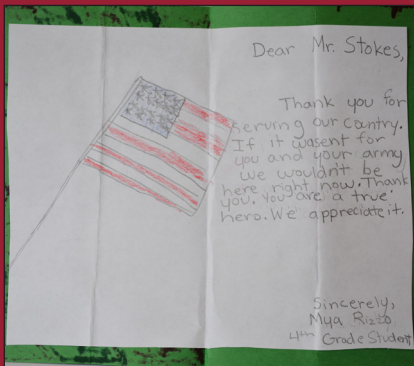 Dear Mr. Stokes,
Thank you for
serving our cantry.
If it wasent for
you and your army
we wouldn't be
here right now. Thank
you. You are a true
hero. We appreciate it.
Sincerely,
Mya
4th Grade Student